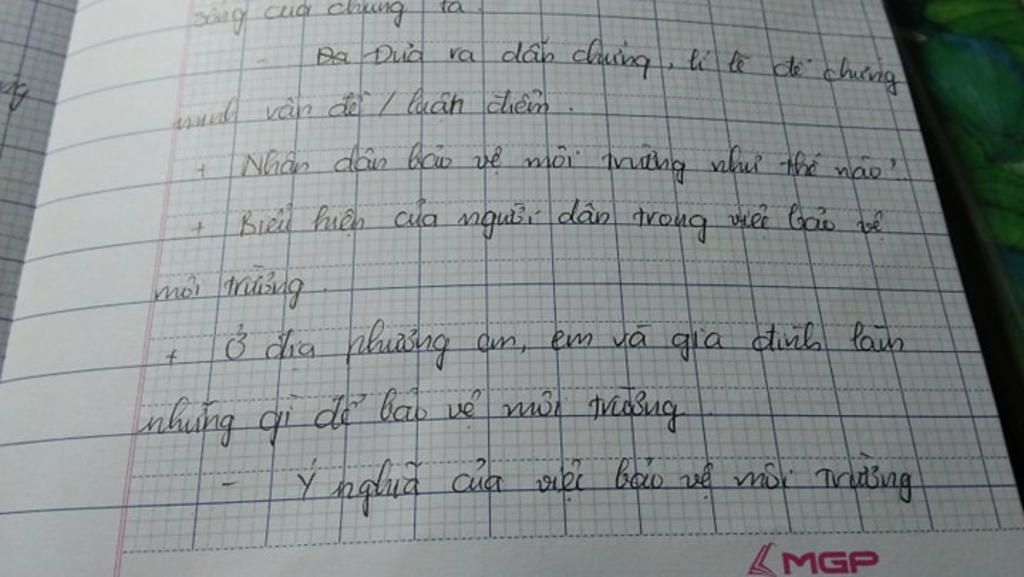 sống của chúng ta.
- Đưa ra dẫn chứng, lí lẽ để chứng
minh vấn đề / luận điểm.
+ Nhân dân bảo vệ môi trường như thế nào?
+ Biểu hiện của người dân trong việc bảo vệ
môi trường.
+ Ở địa phương em, em và gia đình làm
những gì để bảo vệ môi trường.
- Ý nghĩa của việc bảo vệ môi trường
MGP